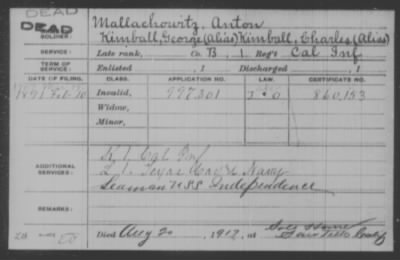 DEAD
DEAD
SOLDIER:
Mallachowitz, Anton
Kimball, George (Alias) Kimball, Charles (Alias)
SERVICE:
Late rank, Co. B, 1 Reg't Cal Inf
TERM OF SERVICE:
Enlisted , 1 Discharged , 1
DATE OF FILING. CLASS. APPLICATION NO. LAW. CERTIFICATE NO.
Invalid, 997201 860,153
Widow,
Minor,
ADDITIONAL SERVICES:
K 1 Cal Inf
L 1 Texas Cav & Navy
Seaman USS Independence
REMARKS:
Died Aug 20, 1912, at Sold Home
Calif